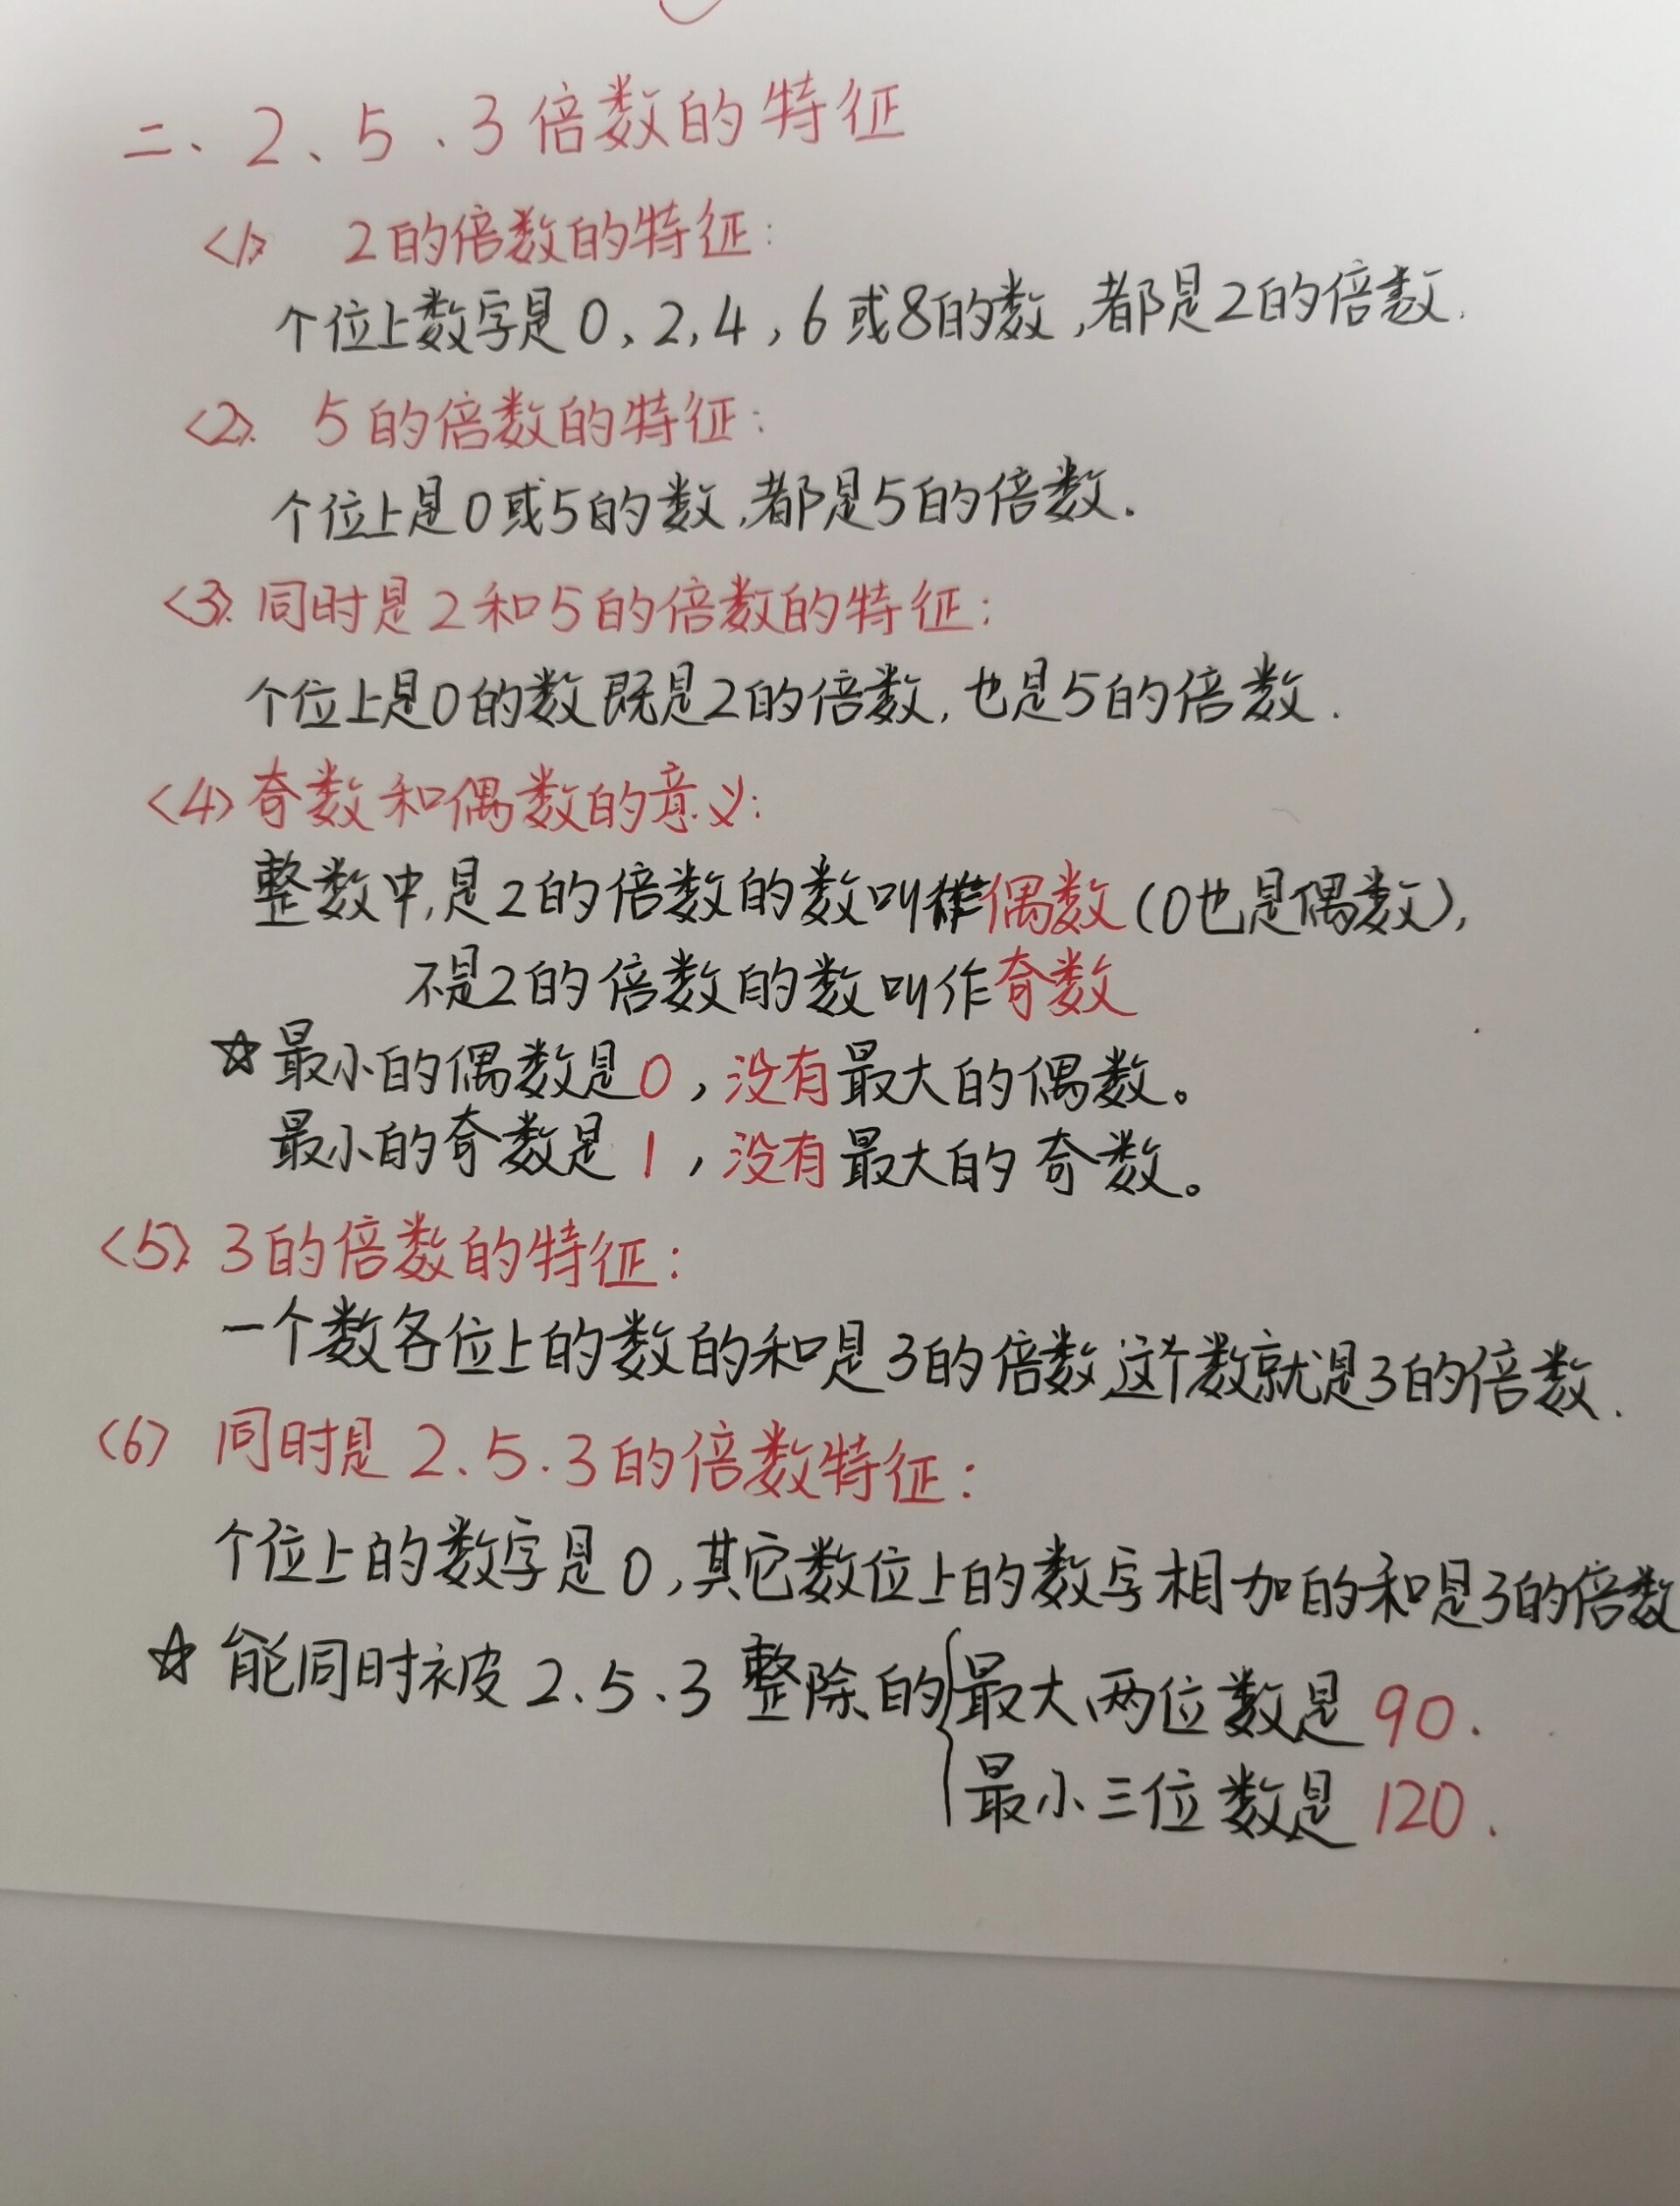 二、2、5、3倍数的特征
<1> 2的倍数的特征:
个位上数字是0、2,4,6或8的数,都是2的倍数.
<2>. 5的倍数的特征:
个位上是0或5的数,都是5的倍数.
<3>. 同时是2和5的倍数的特征:
个位上是0的数既是2的倍数,也是5的倍数.
<4>奇数和偶数的意义:
整数中,是2的倍数的数叫作偶数(0也是偶数),
不是2的倍数的数叫作奇数
☆最小的偶数是0,没有最大的偶数。
最小的奇数是1,没有最大的奇数。
<5> 3的倍数的特征:
一个数各位上的数的和是3的倍数,这个数就是3的倍数.
<6> 同时是2.5.3的倍数特征:
个位上的数字是0,其它数位上的数字相加的和是3的倍数
☆ 能同时被2.5.3整除的{最大两位数是90.
最小三位数是120.